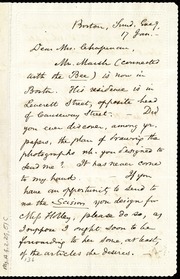 Boston, Sund. Evg.
17 Jan.
Dear Mrs. Chapman,
Mr. March (connected
with the Bee) is now in
Boston. His residence is in
Leverett Street, opposite head
of Causeway Street. Did
you ever discover, among your
papers, the plan of drawing the
photographs wh. you designed to
send me? It has never come
to my hand. If you
have an opportunity to send to
me the Scissors you design for
Miss Holley, please do so, as
I suppose I ought soon to be
forwarding to her some, at least,
of the articles she desires.